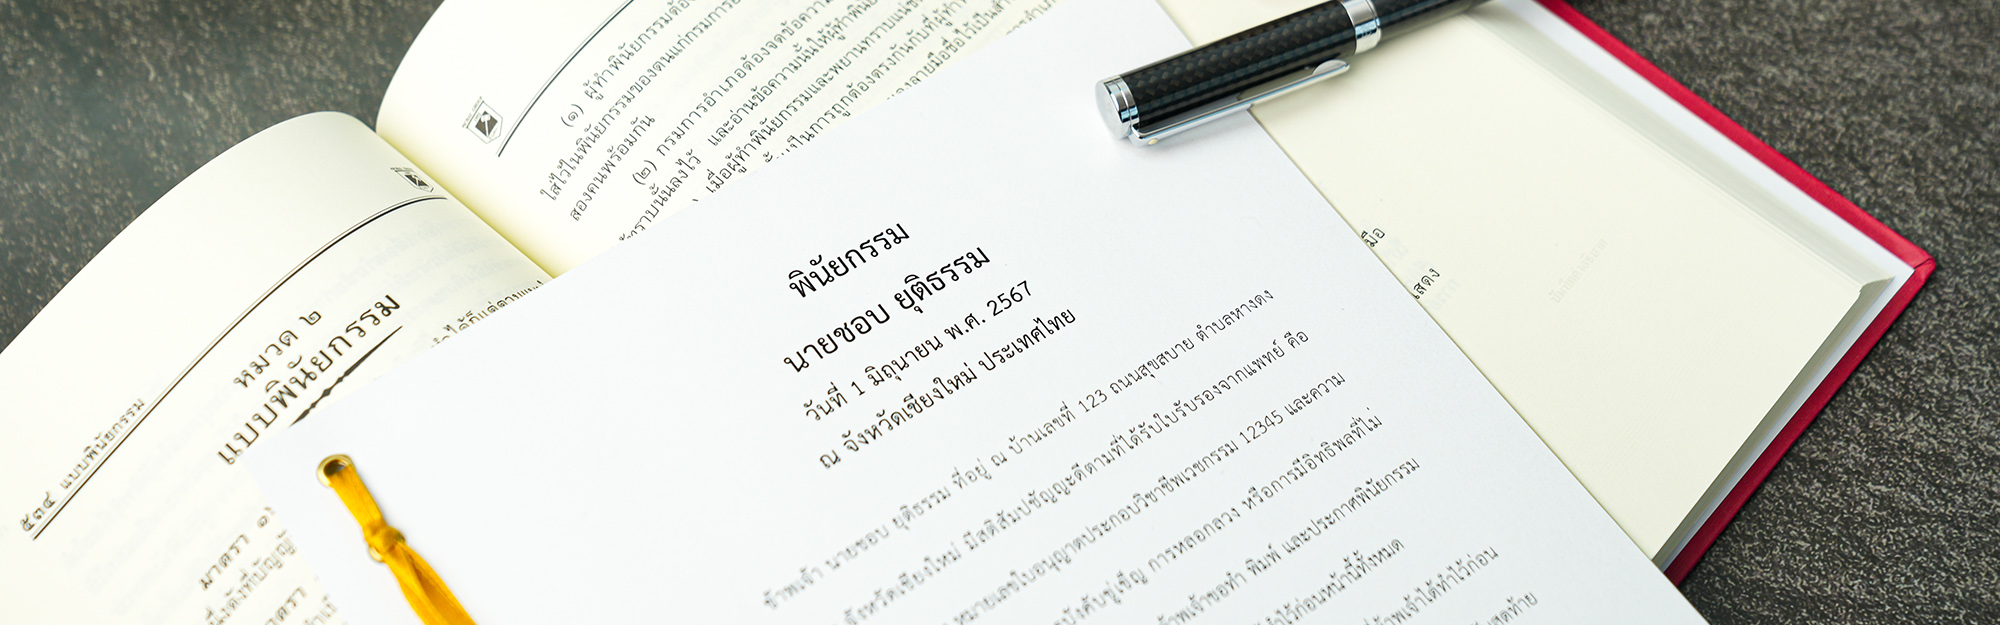 (๑) ผู้ทำพินัยกรรมต้อง
ใส่ไว้ในพินัยกรรมของตนแก่กรมการอำ
สองคนพร้อมกัน
(๒) กรมการอำเภอต้องจดข้อความ
ทราบนั้นลงไว้ และอ่านข้อความนั้นให้ผู้ทำพินัย
เมื่อผู้ทำพินัยกรรมและพยานทราบแน่ชัด
เป็นการถูกต้องตรงกันกับที่ผู้ทำ
ลงลายมือชื่อไว้เป็นสำ
๕๓๔ แบบพินัยกรรม
หมวด ๒
แบบพินัยกรรม
มาตรา
มาตรา
พินัยกรรม
นายชอบ ยุติธรรม
วันที่ 1 มิถุนายน พ.ศ. 2567
ณ จังหวัดเชียงใหม่ ประเทศไทย
ข้าพเจ้า นายชอบ ยุติธรรม ที่อยู่ ณ บ้านเลขที่ 123 ถนนสุขสบาย ตำบลหางดง
จังหวัดเชียงใหม่ มีสติสัมปชัญญะดีตามที่ได้รับใบรับรองจากแพทย์ คือ
หมายเลขใบอนุญาตประกอบวิชาชีพเวชกรรม 12345 และความ
บังคับขู่เข็ญ การหลอกลวง หรือการมีอิทธิพลที่ไม่
ข้าพเจ้าขอทำ พิมพ์ และประกาศพินัยกรรม
ทำไว้ก่อนหน้านี้ทั้งหมด
ข้าพเจ้าได้ทำไว้ก่อน
สุดท้าย
มือ
แสดง